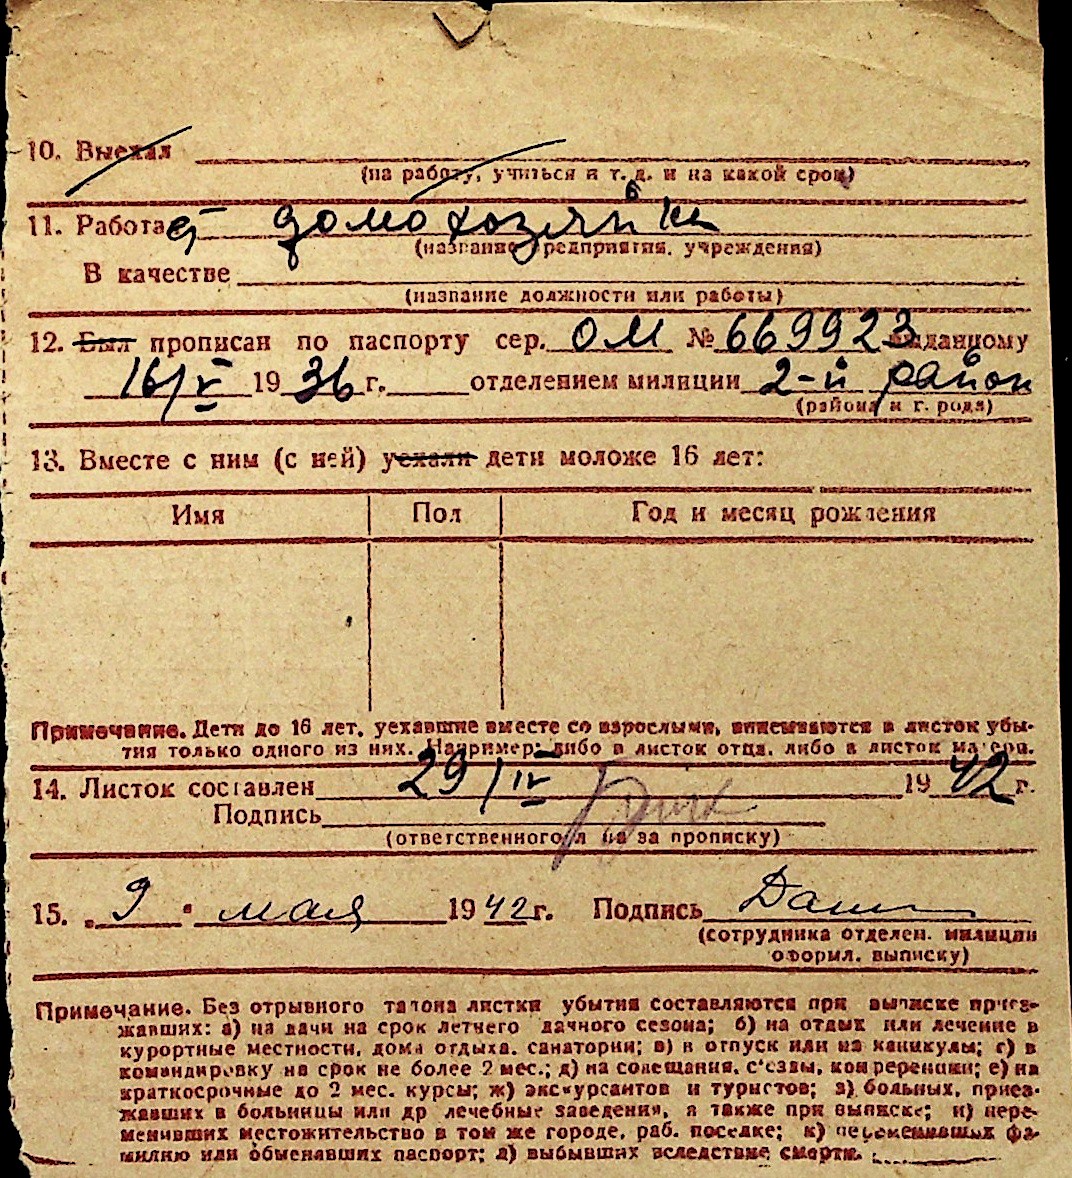 10. Выехал
(на работу, учиться и т. д. и на какой срок)
11. Работает домохозяйка
(название предприятия, учреждения)
В качестве
(название должности или работы)
12. Был прописан по паспорту сер. ОМ № 669923 выданному
16/V 1936 г. отделением милиции 2-й район
(района и г. рода)
13. Вместе с ним (с ней) уехали дети моложе 16 лет:
Имя Пол Год и месяц рождения
Примечание. Дети до 16 лет, уехавшие вместе со взрослыми, вписываются в листок убы-
тия только одного из них. Например: либо в листок отца, либо в листок матери.
14. Листок составлен 29/IV 1942 г.
Подпись
(ответственного л ца за прописку)
15. „9" мая 1942 г. Подпись
(сотрудника отделен. милиции
оформл. выписку)
Примечание. Без отрывного талона листки убытия составляются при выписке приез-
жавших: а) на дачи на срок летнего дачного сезона; б) на отдых или лечение в
курортные местности, дома отдыха, санатории; в) в отпуск или на каникулы; г) в
командировку на срок не более 2 мес.; д) на совещания, с'езды, конференции; е) на
краткосрочные до 2 мес. курсы; ж) экскурсантов и туристов; з) больных, приез-
жавших в больницы или др лечебные заведения, а также при выписке; и) пере-
менивших местожительство в том же городе, раб. поселке; к) переменивших фа-
милию или обменявших паспорт; л) выбывших вследствие смерти.